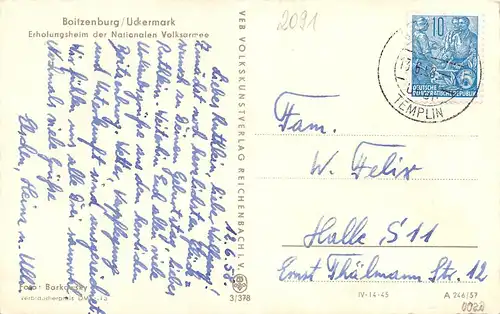 Boitzenburg/Uckermark
Erholungsheim der Nationalen Volksarmee
2091
VEB VOLKSKUNSTVERLAG REICHENBACH I. V.
3/378
10
DEUTSCHE
DEMOKRATISCHE REPUBLIK
TEMPLIN
12.6.58.
Liebes Kathlein, liebe Wolfgang!
Zunächst mal herzlichsten Glück-
wunsch zu Deinem Geburtstag, liebes
Kathlein. Wünsche Euch allen viele
Urlaubsgrüße aus dem herrlichen
Boitzenburg. Wetter, Verpflegung
und Unterkunft sind ausgezeichnet.
Wir fühlen uns alle drei
Nochmals viele Grüße
Heinz u. Ulli
Fam.
W. Felix
Halle S 11
Ernst Thälmann Str. 12
Foto: Barkowsky
Verbraucherpreis DM
IV-14-45
A 246/57